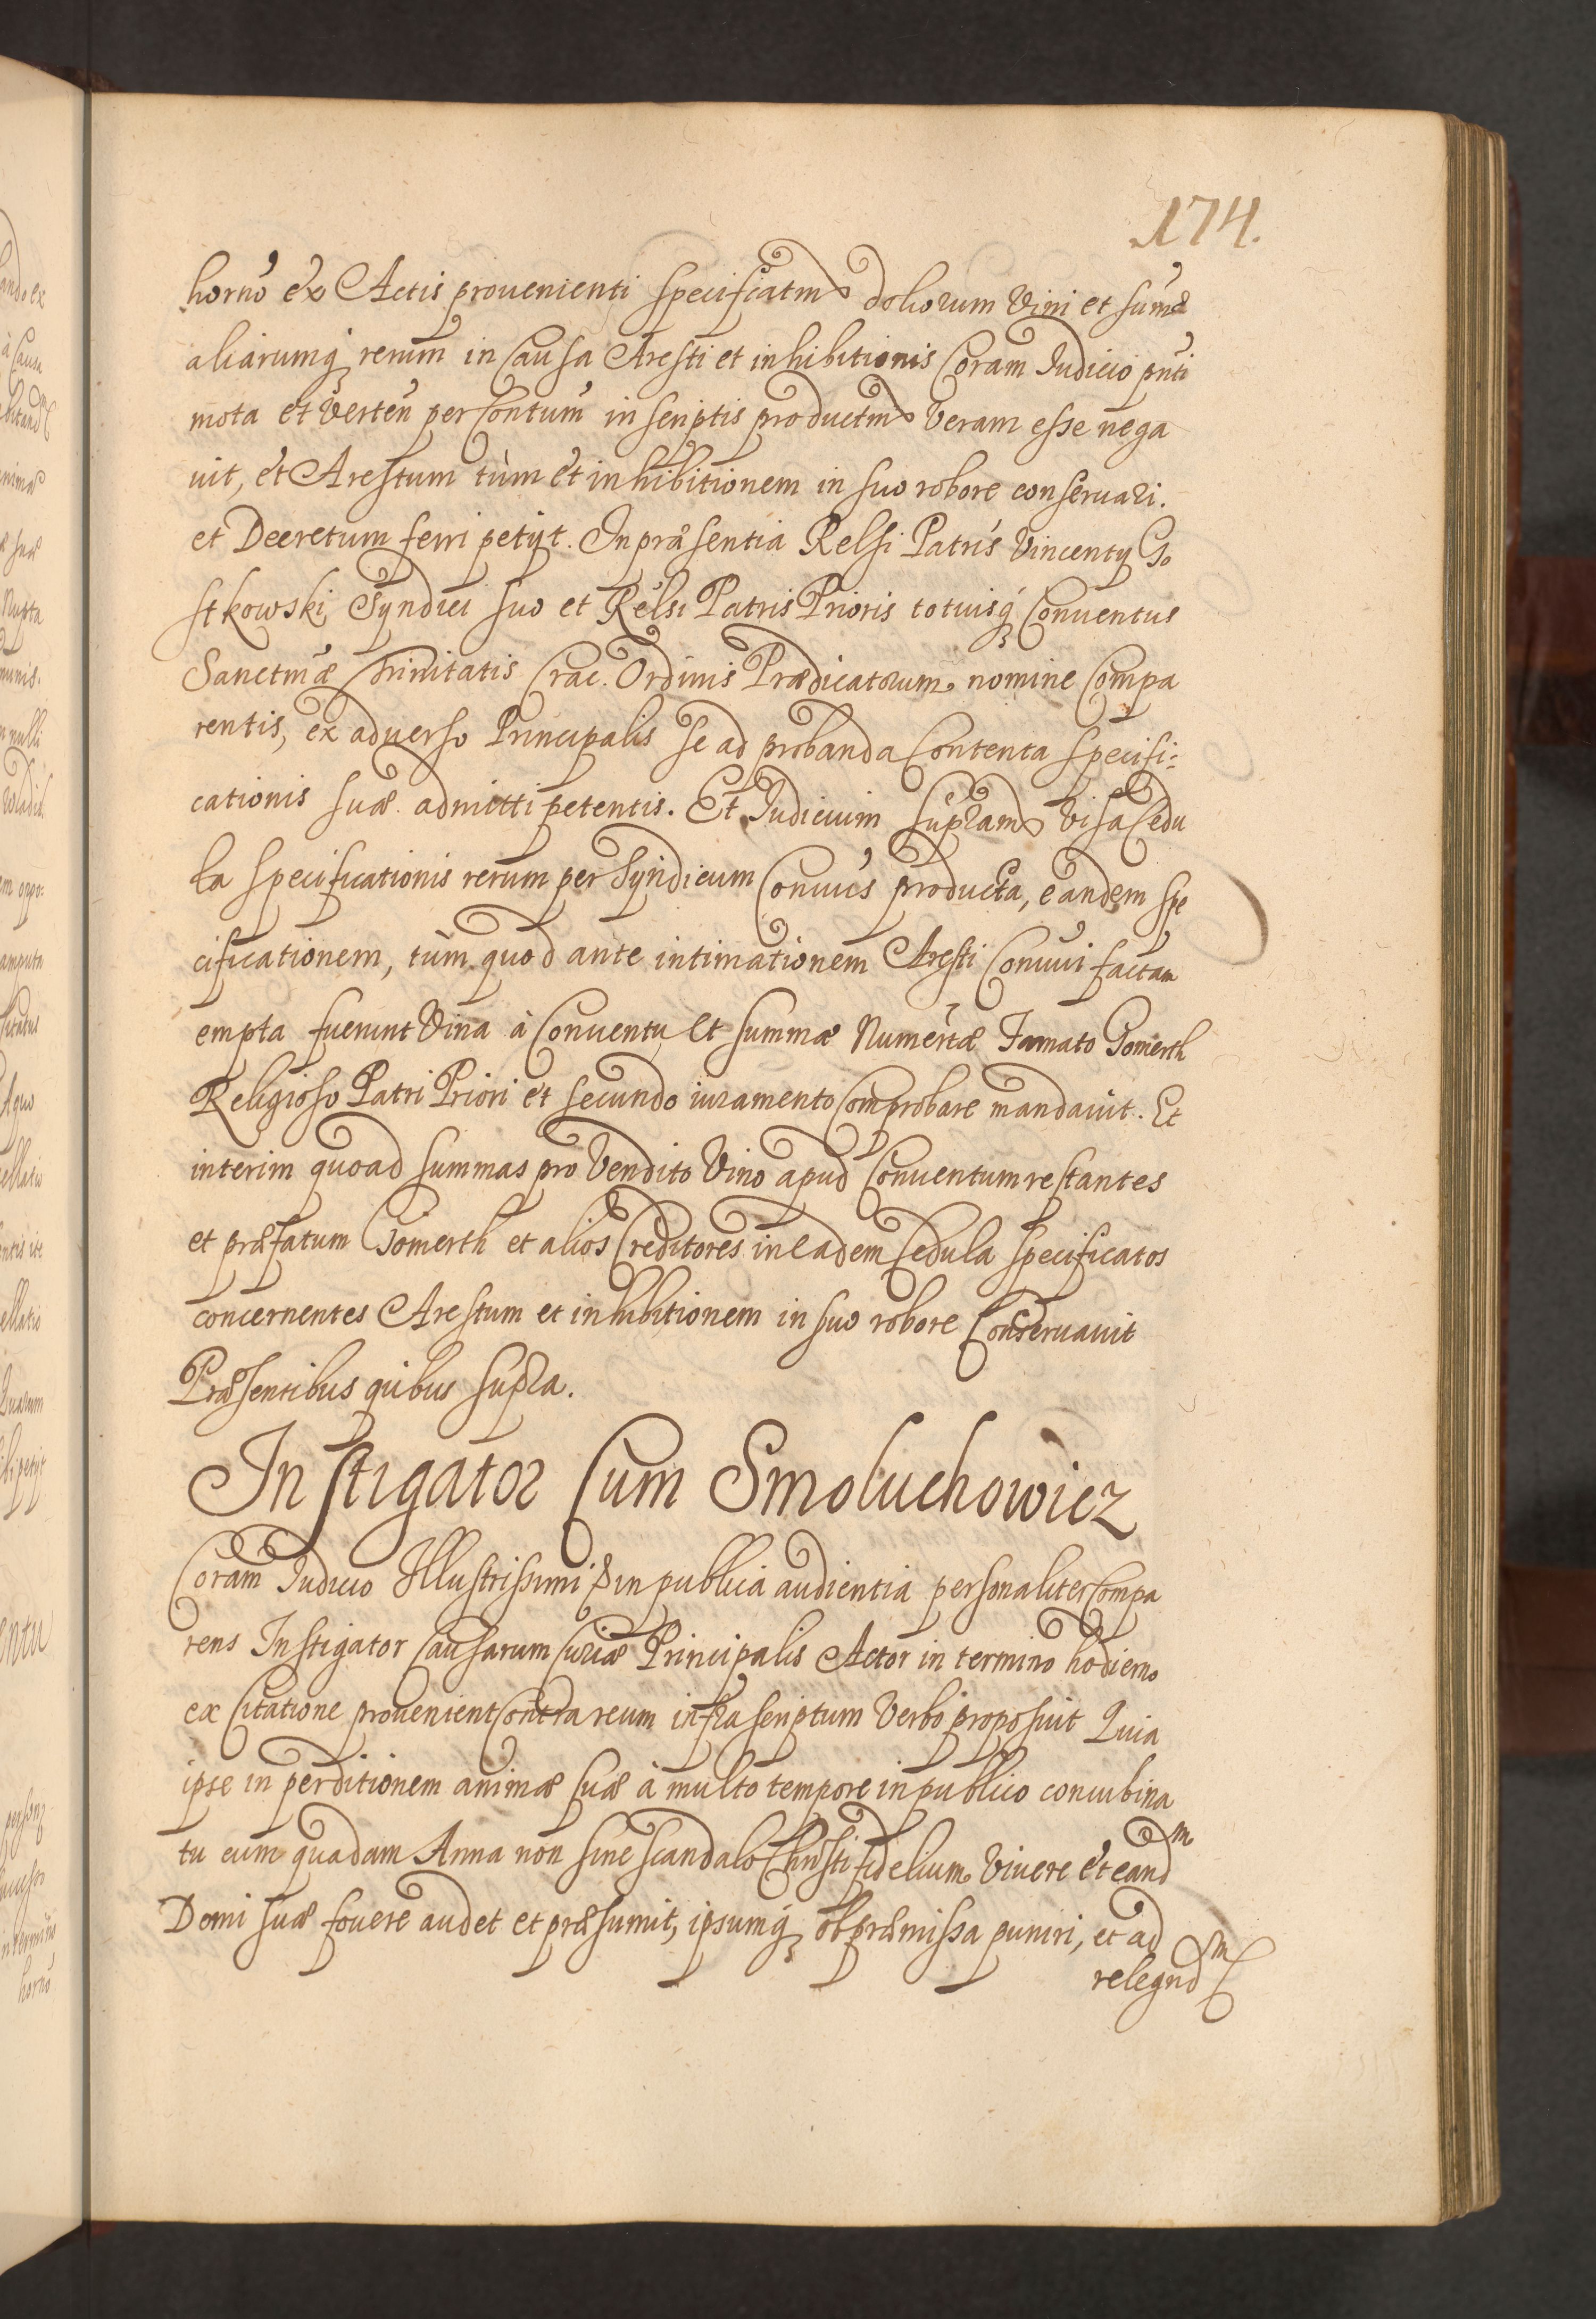 174.
hornō ex Actis prouenienti specificatm doliorum Vini et sum̄æ
aliarumq́ rerum in Causa Aresti et inhibitionis Coram Iudicio pn̄ti
mota et verten̄ per Contum̄ in scriptis productm veram esse nega
uit, et Arestum tùm et inhibitionem in suo robore conseruari.
et Decretum ferri petijt. In præsentia Relsi Patris Vincentij Go
stkowski Syndici suo et Relsi Patris Prioris totiusq́ Conuentus
Sanctmæ Trinitatis Crac. Ordinis Prædicatorum nomine Compa
rentis, ex aduerso Principalis se ad probanda Contenta specifi:
cationis suæ admitti petentis. Et Iudicium supram visa Cedu
la specificationis rerum per Syndicum Conuūs producta, eandem spe
cificationem, tùm quod ante intimationem Aresti Conuui factam
empta fuerunt Vina à Conuentu et summæ Numertæ Famato Gomerth
Religioso Patri Priori et secundo iuramento Comprobare mandauit. Et
interim quoad summas pro vendito Vino apud Conuentum restantes
et præfatum Gomerth et alios Creditores in eadem Cedula specificatos
concernentes Arestum et inhibitionem in suo robore Conseruauit
Præsentibus quibus supra.
Instigator Cum Smoluchowicz
Coram Iudicio Illustrissimi & in publica audientia personaliter Compa
rens Instigator Causarum Curiæ Principalis Actor in termino hodierno
ex Citatione prouenient Contra reum infra scriptum Verbo proposuit Quia
ipse in perditionem animæ suæ à multo tempore in publico concubina
tu cum quadam Anna non sine scandalo Christi fidelium Viuere et eandm
Domi suæ fouere audet et præsumit, ipsumq́ ob præmissa puniri, et ad
relegndm